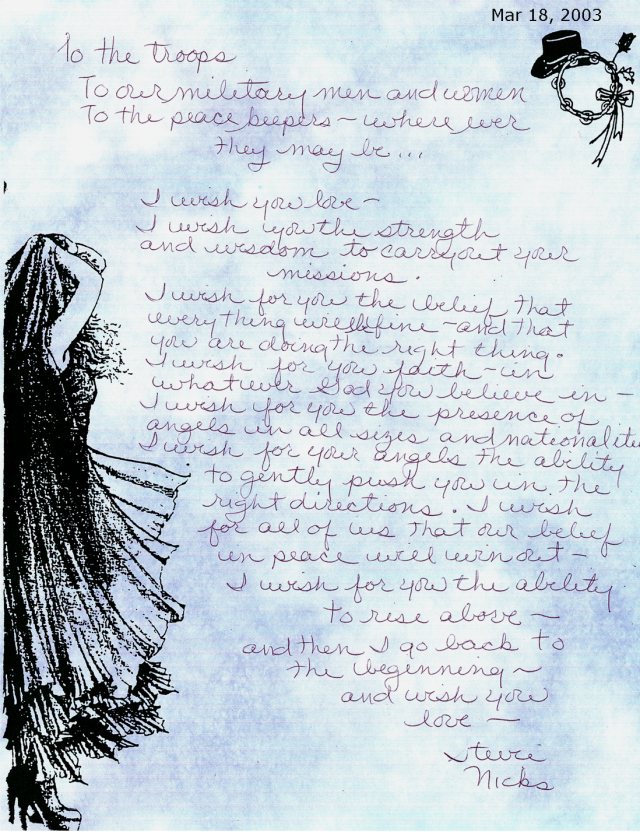 Mar 18, 2003
To the troops
To our military men and women
To the peace keepers - where ever
they may be...
I wish you love -
I wish you the strength
and wisdom to carry out your
missions.
I wish for you the belief that
everything will be fine - and that
you are doing the right thing.
I wish for you faith - in
whatever God you believe in -
I wish for you the presence of
angels in all sizes and nationalitie
I wish for your angels the ability
to gently push you in the
right directions. I wish
for all of us that our belief
in peace will win out -
I wish for you the ability
to rise above -
and then I go back to
the beginning -
and wish you
love -
Stevie
Nicks